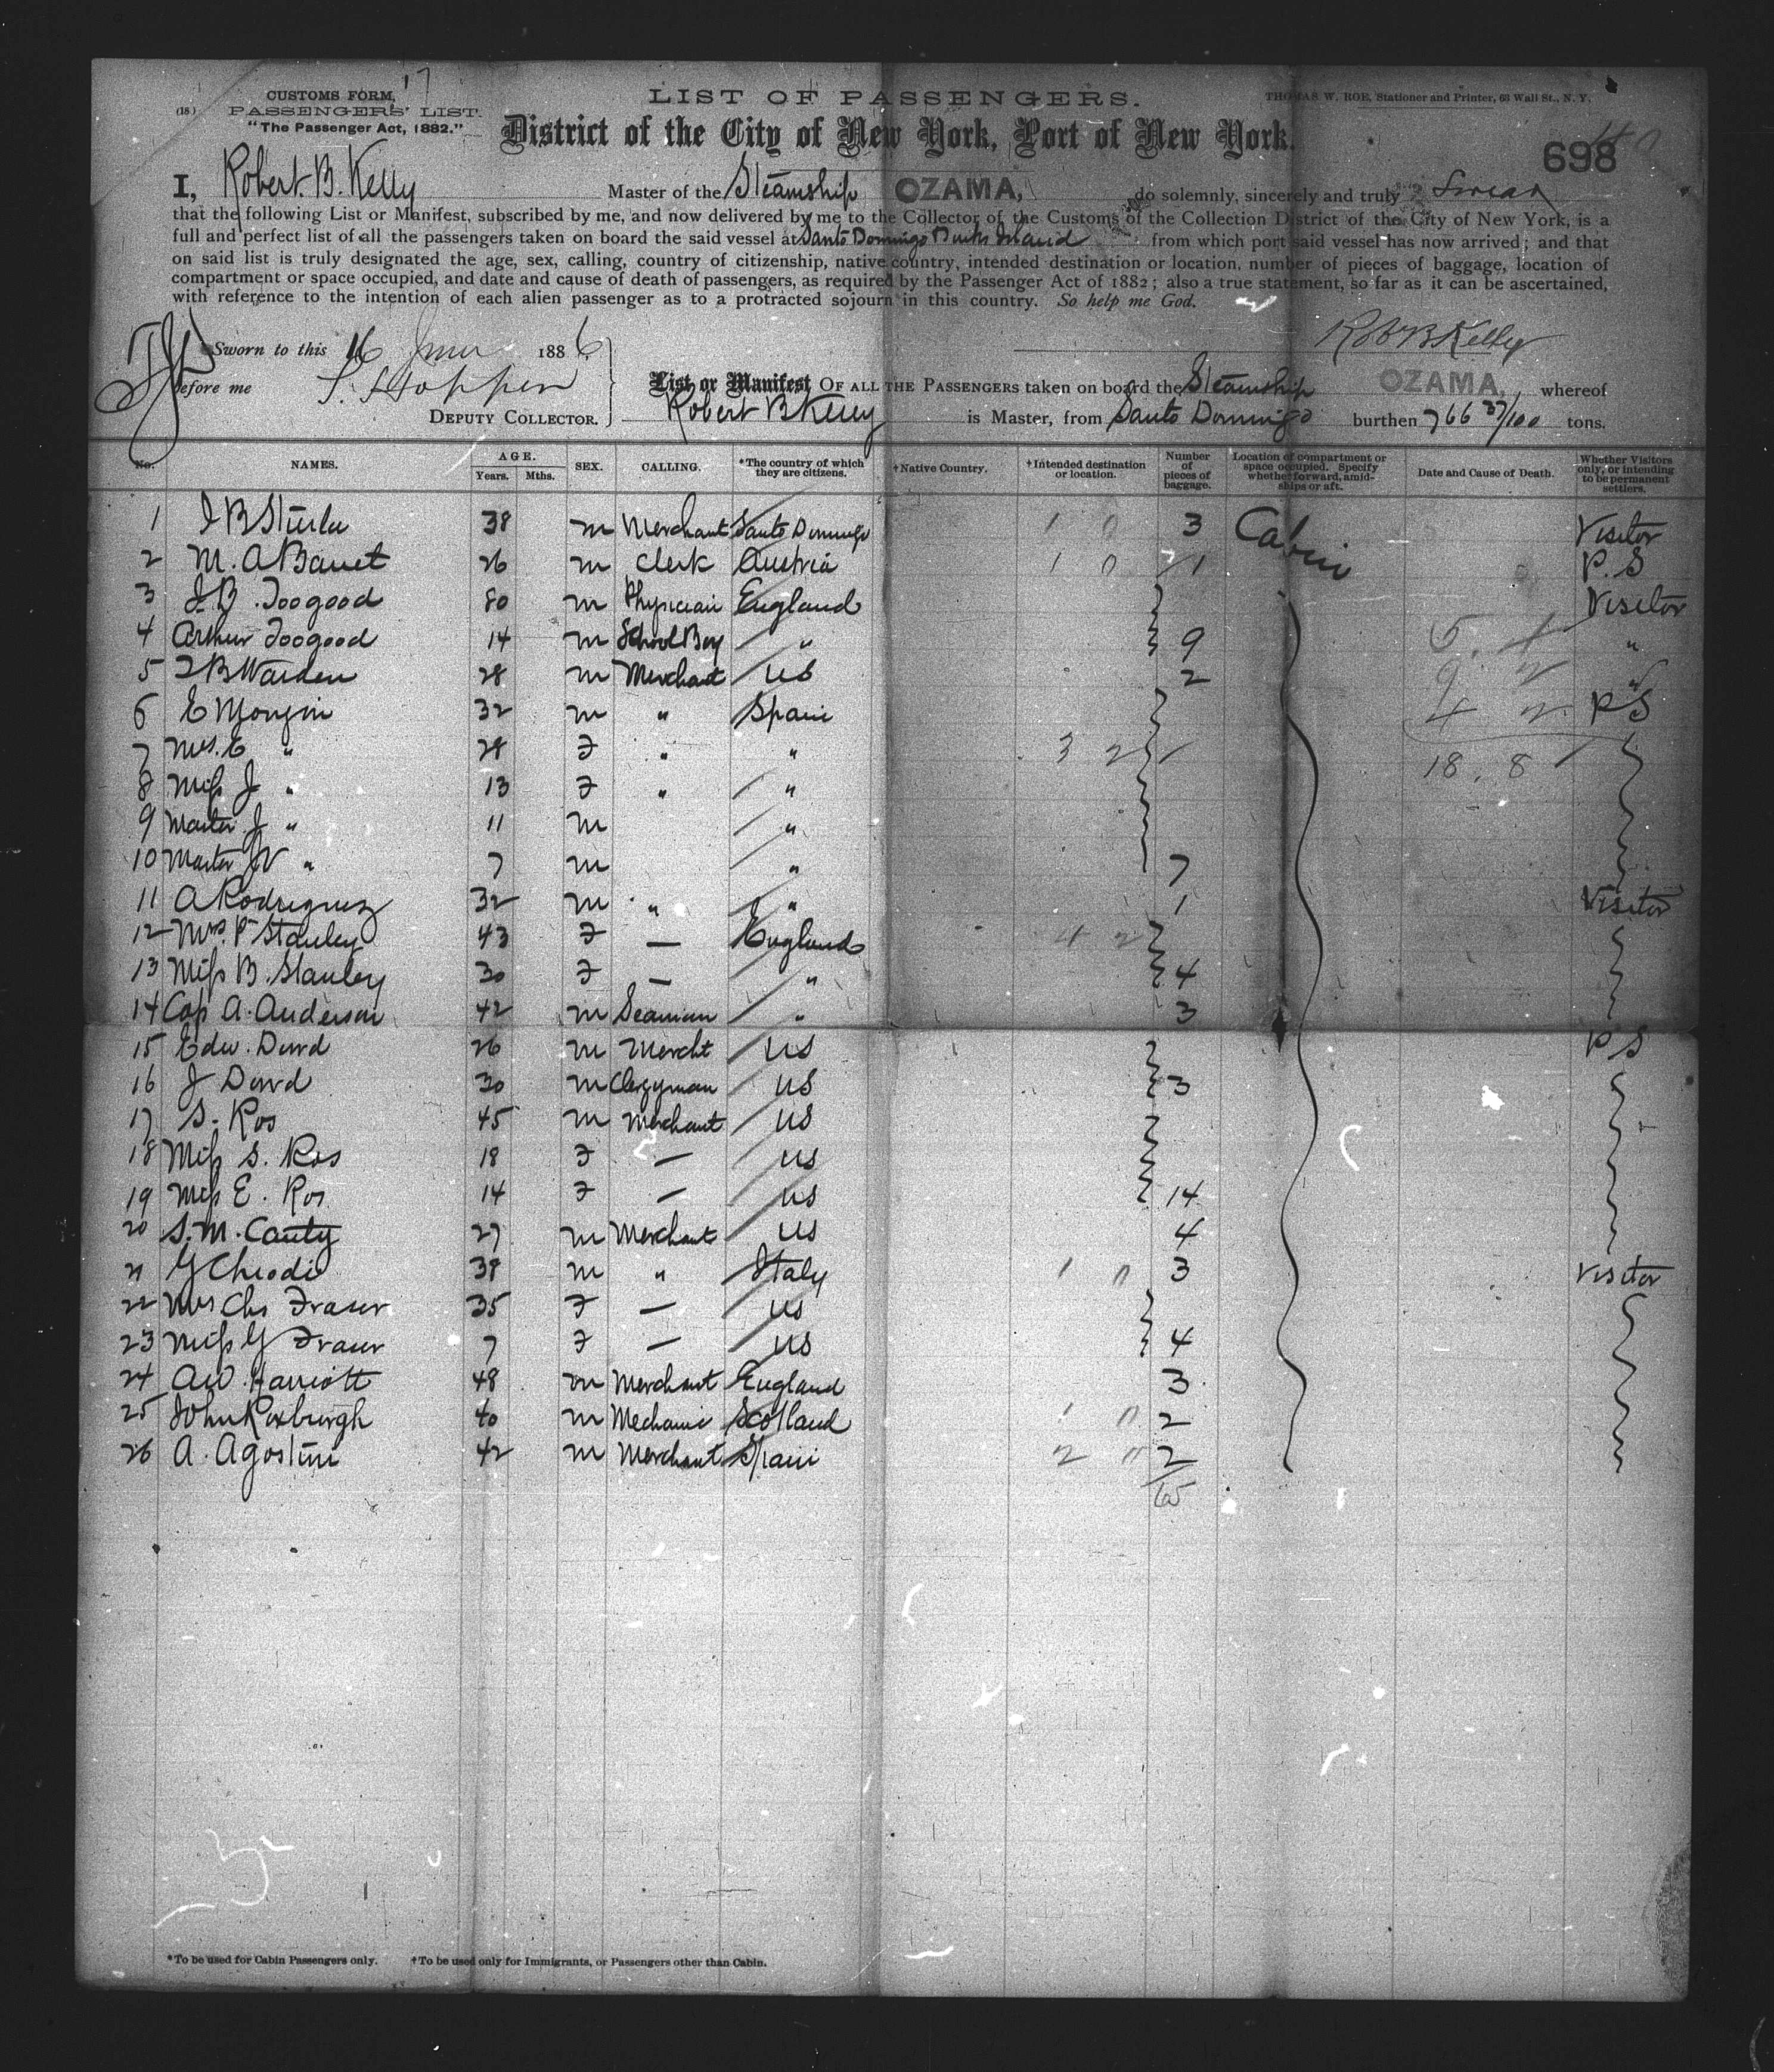 17
(18) CUSTOMS FORM,
PASSENGERS' LIST.
"The Passenger Act, 1882."
LIST OF PASSENGERS.
THOMAS W. ROE, Stationer and Printer, 63 Wall St., N. Y.
District of the City of New York, Port of New York.
698
I, Robert B. Kelly Master of the Steamship OZAMA, do solemnly, sincerely and truly Swear
that the following List or Manifest, subscribed by me, and now delivered by me to the Collector of the Customs of the Collection District of the City of New York, is a
full and perfect list of all the passengers taken on board the said vessel at Santo Domingo Turks Island from which port said vessel has now arrived; and that
on said list is truly designated the age, sex, calling, country of citizenship, native country, intended destination or location, number of pieces of baggage, location of
compartment or space occupied, and date and cause of death of passengers, as required by the Passenger Act of 1882; also a true statement, so far as it can be ascertained,
with reference to the intention of each alien passenger as to a protracted sojourn in this country. So help me God.
Robt B Kelly
Sworn to this 16 June 1886
before me S. Hopper
DEPUTY COLLECTOR.
List or Manifest OF ALL THE PASSENGERS taken on board the Steamship OZAMA, whereof
Robert B Kelly is Master, from Santo Domingo burthen 766 37/100 tons.
No. NAMES. AGE. Years. Mths. SEX. CALLING. *The country of which they are citizens. †Native Country. †Intended destination or location. Number of pieces of baggage. Location of compartment or space occupied. Specify whether forward, amidships or aft. Date and Cause of Death. Whether Visitors only, or intending to be permanent settlers.
1 38 m Merchant Santo Domingo 1 0 3 Cabin Visitor
2 M. A Banet 26 m Clerk Austria 1 0 1 P. S
3 J. B. Toogood 80 m Physician England Visitor
4 Arthur Toogood 14 m School Boy " 9 "
5 J B Warden 28 m Merchant US 2 "
6 E Mongin 32 m " Spain P S
7 Mrs. E " 28 F " " 3 2
8 Miss J " 13 F " "
9 Master J " 11 m "
10 Master N " 7 m " 7
11 A Rodriguez 32 m " " 1 Visitor
12 Mrs. P Stanley 43 F — England 4 2
13 Miss B. Stanley 30 F — " 4
14 Cap A. Anderson 42 m Seaman " 3
15 Edw. Dowd 26 m Mercht US P S
16 J Dowd 30 m Clergyman US 3
17 S. Ros 45 m Merchant US
18 Miss S. Ros 18 F — US
19 Miss E. Ros 14 F — US 14
20 S. M. Canty 27 m Merchant US 4
21 G Chiodi 38 m " Italy 1 0 3 Visitor
22 Mrs Chs Fraser 35 F — US
23 Miss G Fraser 7 F — US 4
24 AW. Harriott 48 m Merchant England 3
25 John Roxburgh 40 m Mechanic Scotland 1 0 2
26 A. Agostini 42 m Merchant Spain 2 0 2
65
18. 8
*To be used for Cabin Passengers only. †To be used only for Immigrants, or Passengers other than Cabin.